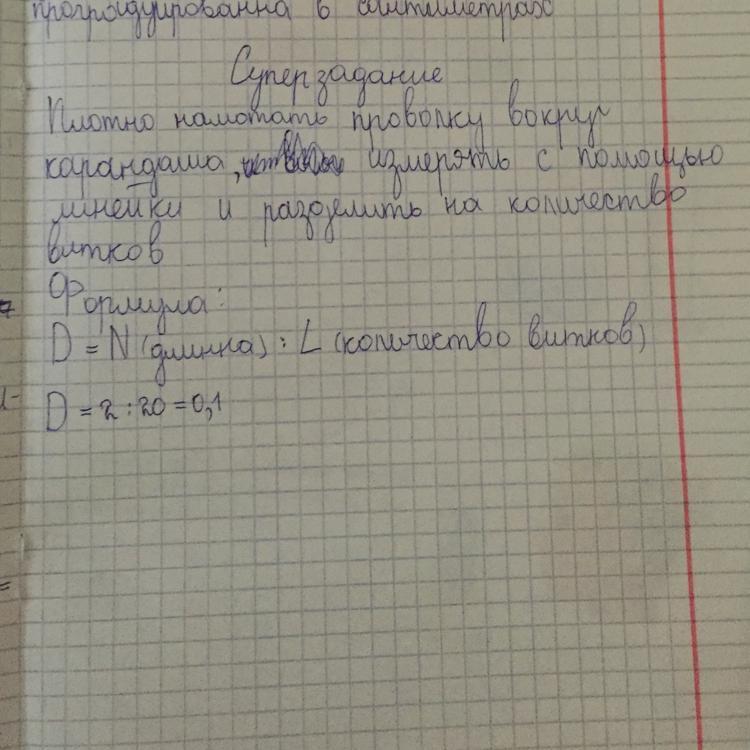 проградуированна в сантиметрах
Суперзадание
Плотно намотать проволку вокруг
карандаша, измерять с помощью
линейки и разделить на количество
витков
Формула:
D = N (длинна) : L (количество витков)
D = 2 : 20 = 0,1